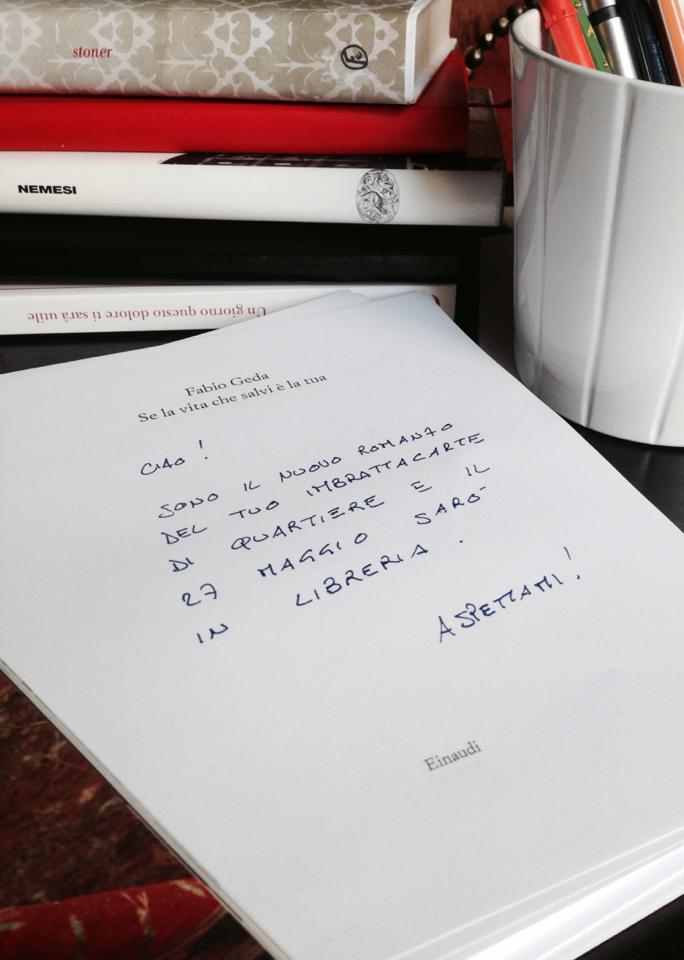 stoner
NEMESI
Un giorno questo dolore ti sarà utile
Fabio Geda
Se la vita che salvi è la tua
CIAO!
SONO IL NUOVO ROMANZO
DEL TUO IMBRATTACARTE
DI QUARTIERE E IL
27 MAGGIO SARÒ
IN LIBRERIA.
ASPETTAMI!
Einaudi